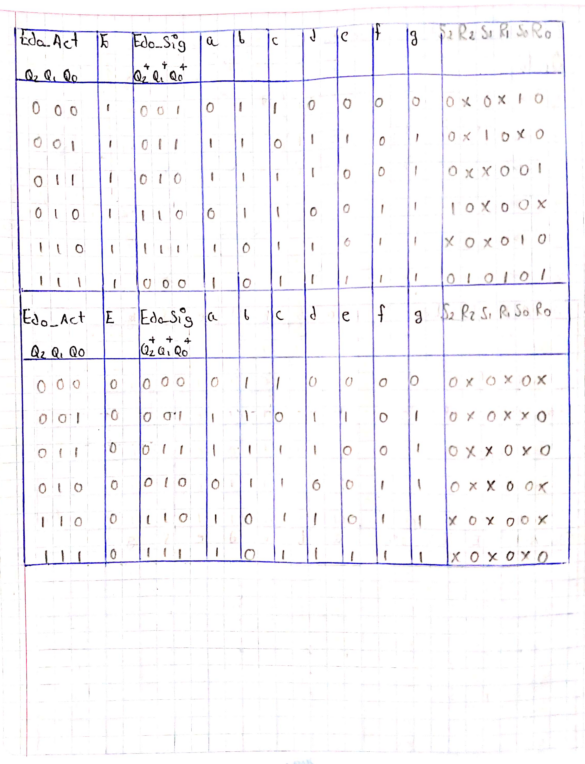 Edo_Act E Edo_Sig a b c d e f g S₂ R₂ S₁ R₁ S₀ R₀
Q₂ Q₁ Q₀ Q₂⁺ Q₁⁺ Q₀⁺
0 0 0 1 0 0 1 0 1 1 0 0 0 0 0 X 0 X 1 0
0 0 1 1 0 1 1 1 1 0 1 1 0 1 0 X 1 0 X 0
0 1 1 1 0 1 0 1 1 1 1 0 0 1 0 X X 0 0 1
0 1 0 1 1 1 0 0 1 1 0 0 1 1 1 0 X 0 0 X
1 1 0 1 1 1 1 1 0 1 1 0 1 1 X 0 X 0 1 0
1 1 1 1 0 0 0 1 0 1 1 1 1 1 0 1 0 1 0 1
Edo_Act E Edo_Sig a b c d e f g S₂ R₂ S₁ R₁ S₀ R₀
Q₂ Q₁ Q₀ Q₂⁺ Q₁⁺ Q₀⁺
0 0 0 0 0 0 0 0 1 1 0 0 0 0 0 X 0 X 0 X
0 0 1 0 0 0 1 1 1 0 1 1 0 1 0 X 0 X X 0
0 1 1 0 0 1 1 1 1 1 1 0 0 1 0 X X 0 X 0
0 1 0 0 0 1 0 0 1 1 0 0 1 1 0 X X 0 0 X
1 1 0 0 1 1 0 1 0 1 1 0 1 1 X 0 X 0 0 X
1 1 1 0 1 1 1 1 0 1 1 1 1 1 X 0 X 0 X 0